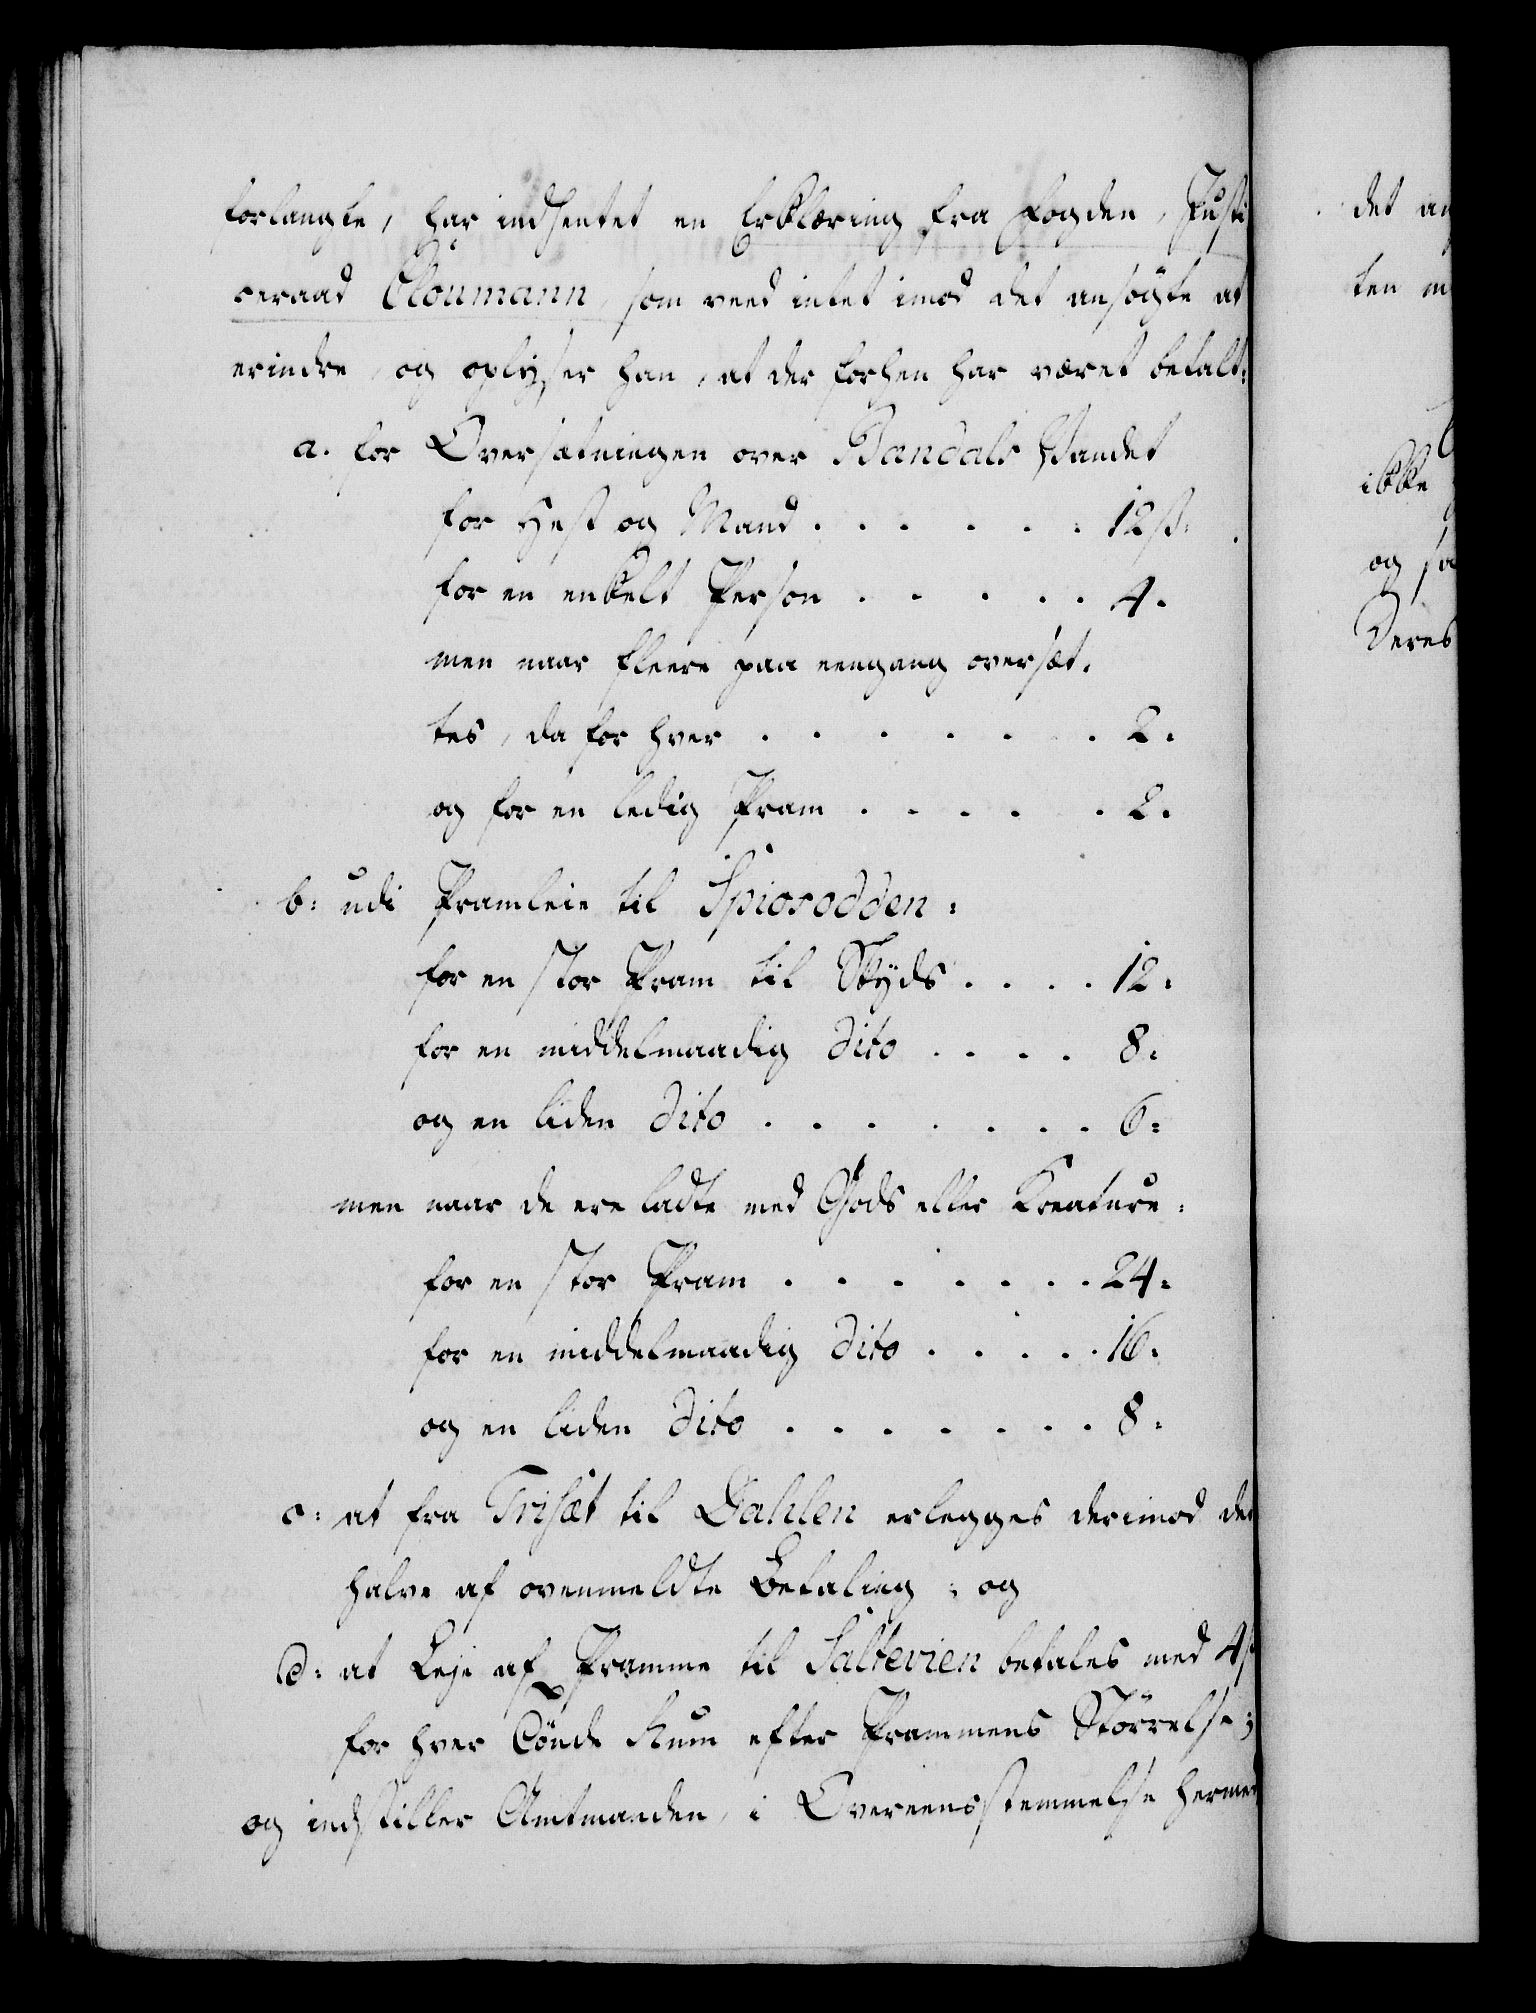 forlangte, har indhentet en Erklæring fra Fogden, Justi
ceraad Cloumann, som veed intet imod det ansögte at
erindre, og oplyser han, at der forhen har været betalt:
a. for Oversætningen over Bandals Vandet
for Hest og Mand . . . . . . 12 ß.
for en enkelt Person . . . . . 4.
men naar fleere paa eengang oversæt-
tes, da for hver . . . . . . . 2.
og for en ledig Pram . . . . . 2.
b: udi Pramleie til Spiosodden:
for en stor Pram til Skyds . . . . 12:
for en middelmaadig dito . . . . 8:
og en liden dito . . . . . . . 6:
men naar de ere ladte med Gods eller Kreature:
for en stor Pram . . . . . . . 24:
for en middelmaadig dito . . . . . 16.
og en liden dito . . . . . . . 8.
c: at fra Trisæt til Dahlen erlegges derimod det
halve af ovenmeldte Betaling; og
d: at Leje af Pramme til Saltevien betales med 4 ß
for hver Tönde Rum efter Prammens Störrelse;
og indstiller Amtmanden, i Overeensstemmelse hermed
det an
ten m
ikke
og sa
Deres